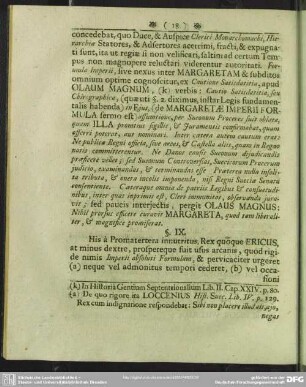 ( 18. )
concedebat, quo Duce, & Auspice Christi Monarchomachi, Hie-
rarchiæ Statores, & Adsertores acerrimi, fracti, & expugna-
ti sunt, ita ut regiæ si non velificari, saltim ad certum Tem-
pus non magnopere reluctari viderentur autoritati. For-
mula Imperii, sive nexus inter MARGARETAM & subditos
omnium optime cognoscitur, ex Cautione Satisdatitia, apud
OLAUM MAGNUM, (k) verbis: Cautio Satisdatitia, seu
Chirographica, (quæ tit §. 2. dicimus, instar Legis fundamen-
talis habenda) in Ejus, (de MARGARETÆ IMPERII FOR-
MULA sermo est) assumtione, per Suecorum Proceres fuit oblata,
quam ILLA promtius sigillo, & Juramento confirmabat, quam
asserti poterat, aut nominari. Inter cætera autem cautum erat:
Ne publica Regni officia, sua arces, & Castella aliis, quam in Regno
natis committerentur. Ne Danos causis Suecorum dijudicandis
præficere velit; sed Suecorum Controversias, Suecicorum Procerum
judicio, examinandas, & terminandas esse. Præterea nulla insoli-
ta tributa, & onera incolis imponenda, nisi Regni Suecia Senatu
consentiente. Cæteraque omnia de patriis Legibus & consuetudi-
nibus, inter quas inprimis est, Cleri immunitas, observanda jura-
vit; sed paucis interjectis, pergit OLAUS MAGNUS:
Nihil prorsus efficere curavit MARGARETA, quod tam liberali-
ter, & magnifice promiserat.
§. IX.
His à Promatertera innutritus, Rex quoque ERICUS,
at minus dextre, prospereque fuit usus arcanis, quod rigi-
de nimis Imperii absoluti Formulam, & pervicaciter urgeret
(a) neque vel admonitus tempori cederet, (b) vel occa-
sioni
(k) In Historia Gentium Septentrionalium Lib. II. Cap. XXIV. p. 80.
(a) De quo rigore ita LOCCENIUS Hist. Suec. Lib. IV. p. 129.
Rex cum indignatione respondebat: Sibi non placere illud aliquo,
negas